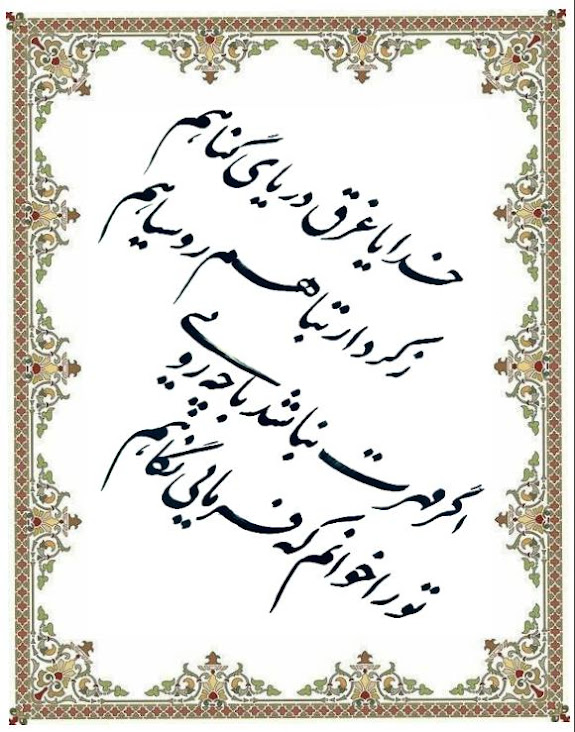 خدایا غرق دریای گناهم
ز کردار تباهم روسیاهم
اگر مهرت نباشد با چه رویی
تو را خوانم که فرمایی نگاهم